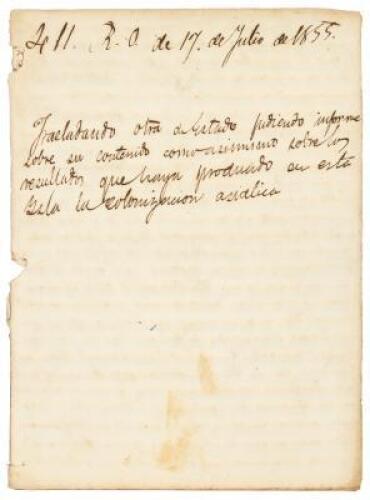 411. R. O. de 17. de Julio de 1855.
Trasladando otra de Estado pidiendo informe
sobre su contenido como asimismo sobre los
resultados que haya producido en esta
Isla la colonizacion asiatica